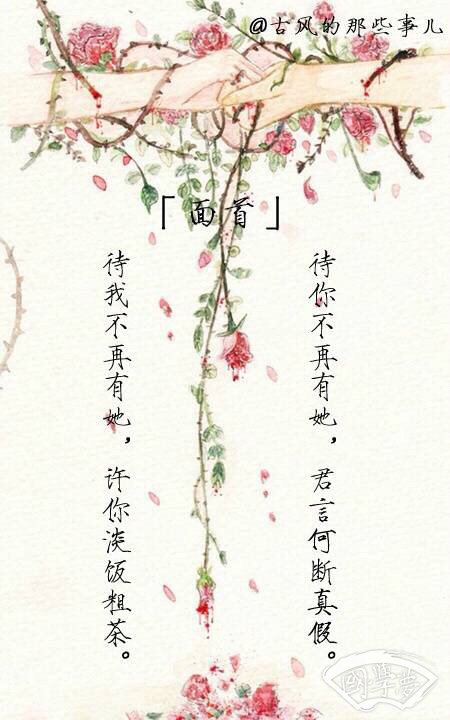 @古风的那些事儿
「面首」
待你不再有她，君言何断真假。
待我不再有她，许你淡饭粗茶。
國學夢